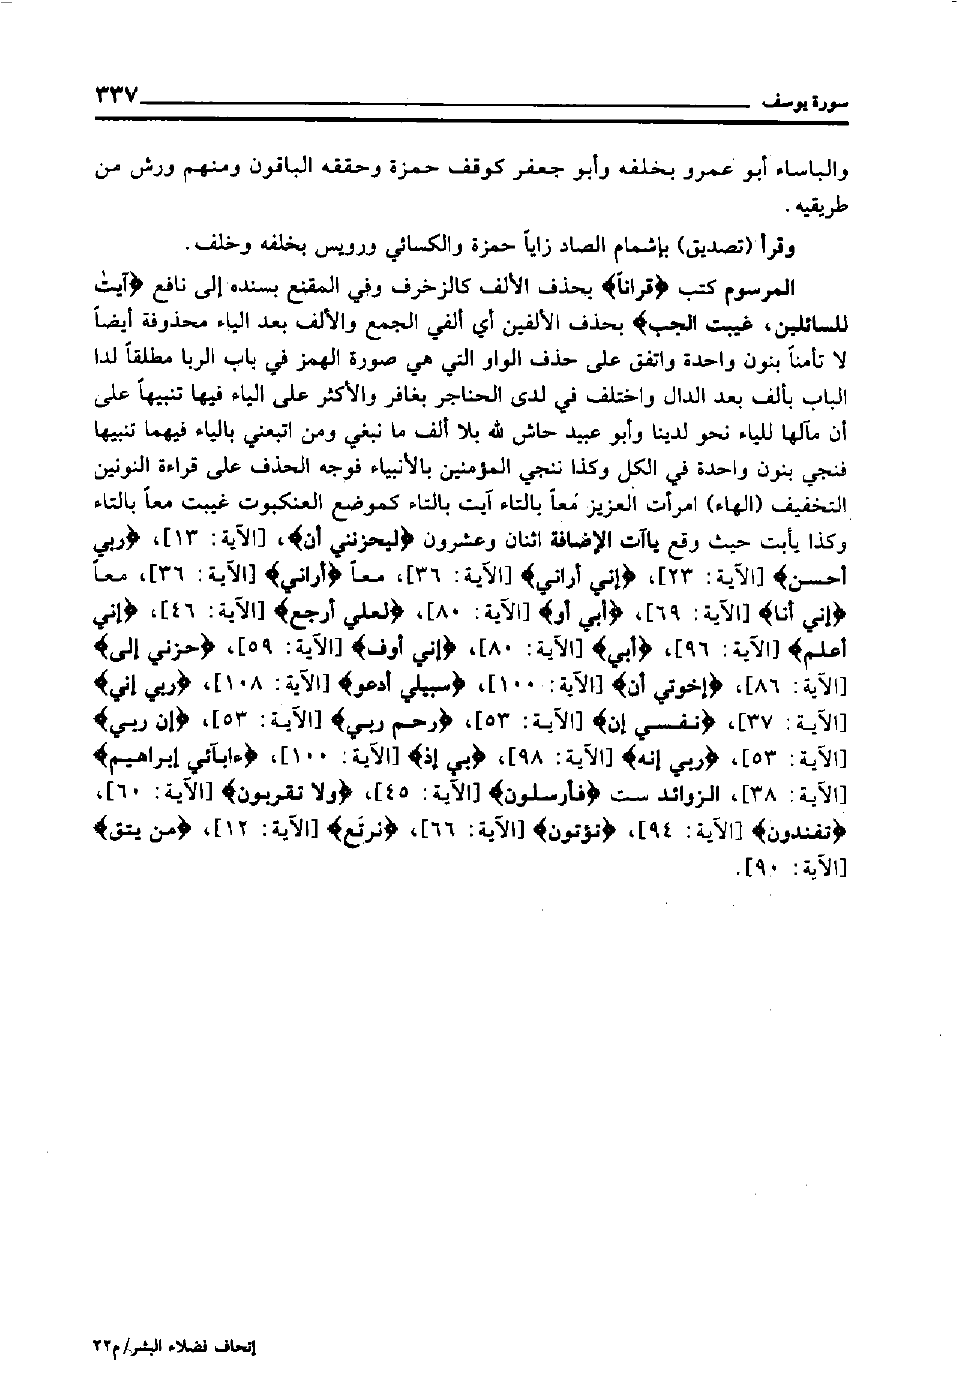 سورة يوسف ٣٣٧
والباساء أبو عمرو بخلفه وأبو جعفر كوقف حمزة وحققه الباقون ومنهم ورش من
طريقيه.
وقرأ (تصديق) بإشمام الصاد زاياً حمزة والكسائي ورويس بخلفه وخلف.
المرسوم كتب ﴿قراناً﴾ بحذف الألف كالزخرف وفي المقنع بسنده إلى نافع ﴿آيتٌ
للسائلين، غيبت الجب﴾ بحذف الألفين أي ألفي الجمع والألف بعد الياء محذوفة أيضاً
لا تأمناً بنون واحدة واتفق على حذف الواو التي هي صورة الهمز في باب الربا مطلقاً لدا
الباب بألف بعد الدال واختلف في لدى الحناجر بغافر والأكثر على الياء فيها تنبيهاً على
أن مآلها للياء نحو لدينا وأبو عبيد حاش لله بلا ألف ما نبغي ومن اتبعني بالياء فيهما تنبيها
فنجي بنون واحدة في الكل وكذا ننجي المؤمنين بالأنبياء فوجه الحذف على قراءة النونين
التخفيف (الهاء) امرأت العزيز مُعاً بالتاء آيت بالتاء كموضع العنكبوت غيبت معاً بالتاء
وكذا يأبت حيث وقع ياآت الإضافة اثنان وعشرون ﴿ليحزنني أن﴾، [الآية: ١٣]، ﴿ربي
أحسن﴾ [الآية: ٢٣]، ﴿إني أراني﴾ [الآية: ٣٦]، معاً ﴿أراني﴾ [الآية: ٣٦]، معاً
﴿إني أنا﴾ [الآية: ٦٩]، ﴿أبي أو﴾ [الآية: ٨٠]، ﴿لعلي أرجع﴾ [الآية: ٤٦]، ﴿إني
أعلم﴾ [الآية: ٩٦]، ﴿أبي﴾ [الآية: ٨٠]، ﴿إني أوف﴾ [الآية: ٥٩]، ﴿حزني إلى﴾
[الآية: ٨٦]، ﴿إخوتي أن﴾ [الآية: ١٠٠]، ﴿سبيلي أدعو﴾ [الآية: ١٠٨]، ﴿ربي إني﴾
[الآية: ٣٧]، ﴿نفسي إن﴾ [الآية: ٥٣]، ﴿رحم ربي﴾ [الآية: ٥٣]، ﴿إن ربي﴾
[الآية: ٥٣]، ﴿ربي إنه﴾ [الآية: ٩٨]، ﴿بي إذ﴾ [الآية: ١٠٠]، ﴿ءابآئي إبراهيم﴾
[الآية: ٣٨]، الزوائد ست ﴿فأرسلون﴾ [الآية: ٤٥]، ﴿ولا تقربون﴾ [الآية: ٦٠]،
﴿تفندون﴾ [الآية: ٩٤]، ﴿تؤتون﴾ [الآية: ٦٦]، ﴿نرتع﴾ [الآية: ١٢]، ﴿من يتق﴾
[الآية: ٩٠].
إتحاف فضلاء البشر/م٢٢